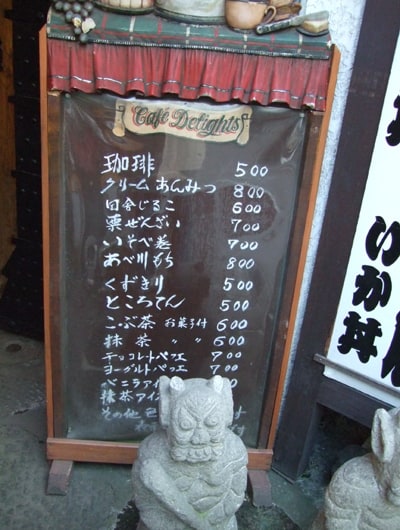 Café Delights
珈琲 500
クリームあんみつ 800
田舎じるこ 600
粟ぜんざい 700
いそべ巻 700
あべ川もち 800
くずきり 500
ところてん 500
こぶ茶 お菓子付 600
抹茶 〃 〃 600
チョコレートパフェ 700
ヨーグルトパフェ 700
バニラアイ
抹茶アイ
その他
いか丼